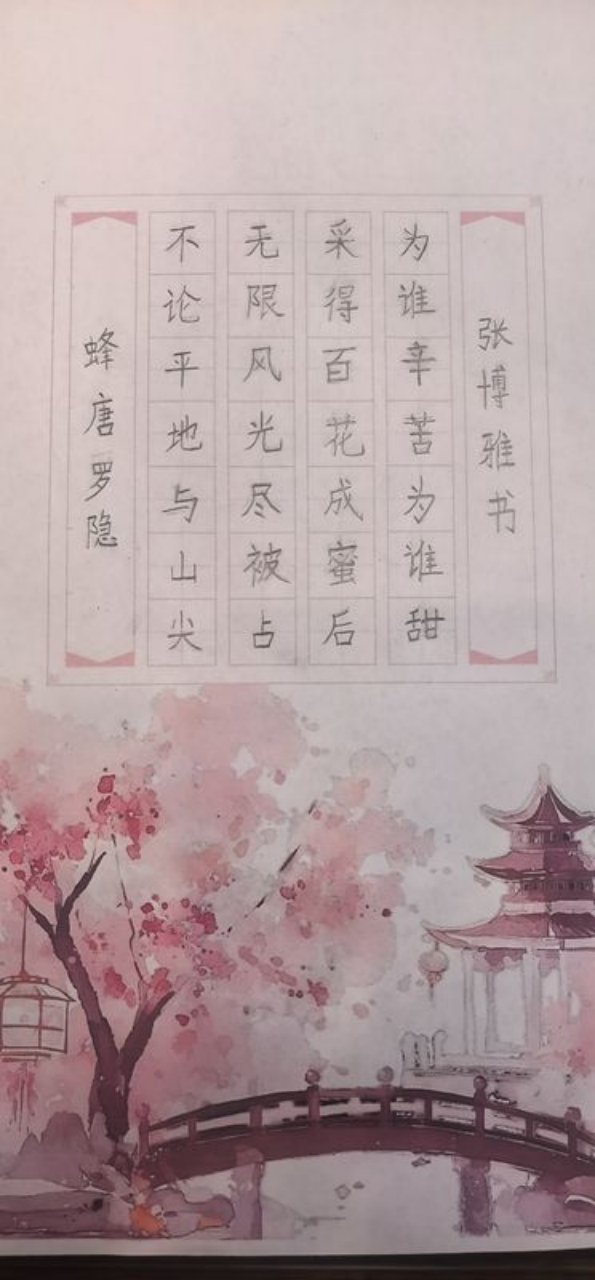 蜂唐罗隐
不论平地与山尖
无限风光尽被占
采得百花成蜜后
为谁辛苦为谁甜
张博雅书